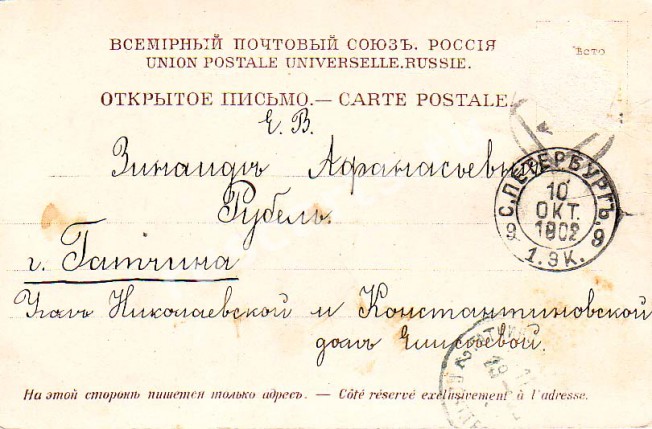 ВСЕМІРНЫЙ ПОЧТОВЫЙ СОЮЗЪ. РОССІЯ
UNION POSTALE UNIVERSELLE. RUSSIE.
ОТКРЫТОЕ ПИСЬМО. — CARTE POSTALE.
Е. В.
Зинаидѣ Афанасьевнѣ
Рубель.
г. Гатчина
Уголъ Николаевской и Константиновской
домъ Елисѣевой.
С. ПЕТЕРБУРГЪ.
10
ОКТ.
1902
9 9
1. Э К.
На этой сторонѣ пишется только адресъ. — Côté réservé exclusivement à l'adresse.